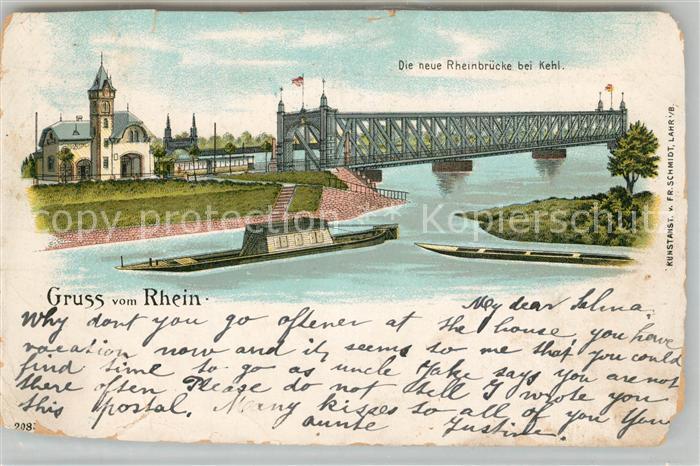 Die neue Rheinbrücke bei Kehl.
KUNSTANST. v. FR. SCHMIDT, LAHR i/B.
copy protection copyright ©Kulturpools
Gruss vom Rhein.
My dear Selma,
Why dont you go oftener at the house, you have
vacation now and it, seems to me that you could
find time to go as uncle Jake says you are not
there often Please do not tell I wrote you
this postal. Many kisses to all of you You
aunte Justine.
208